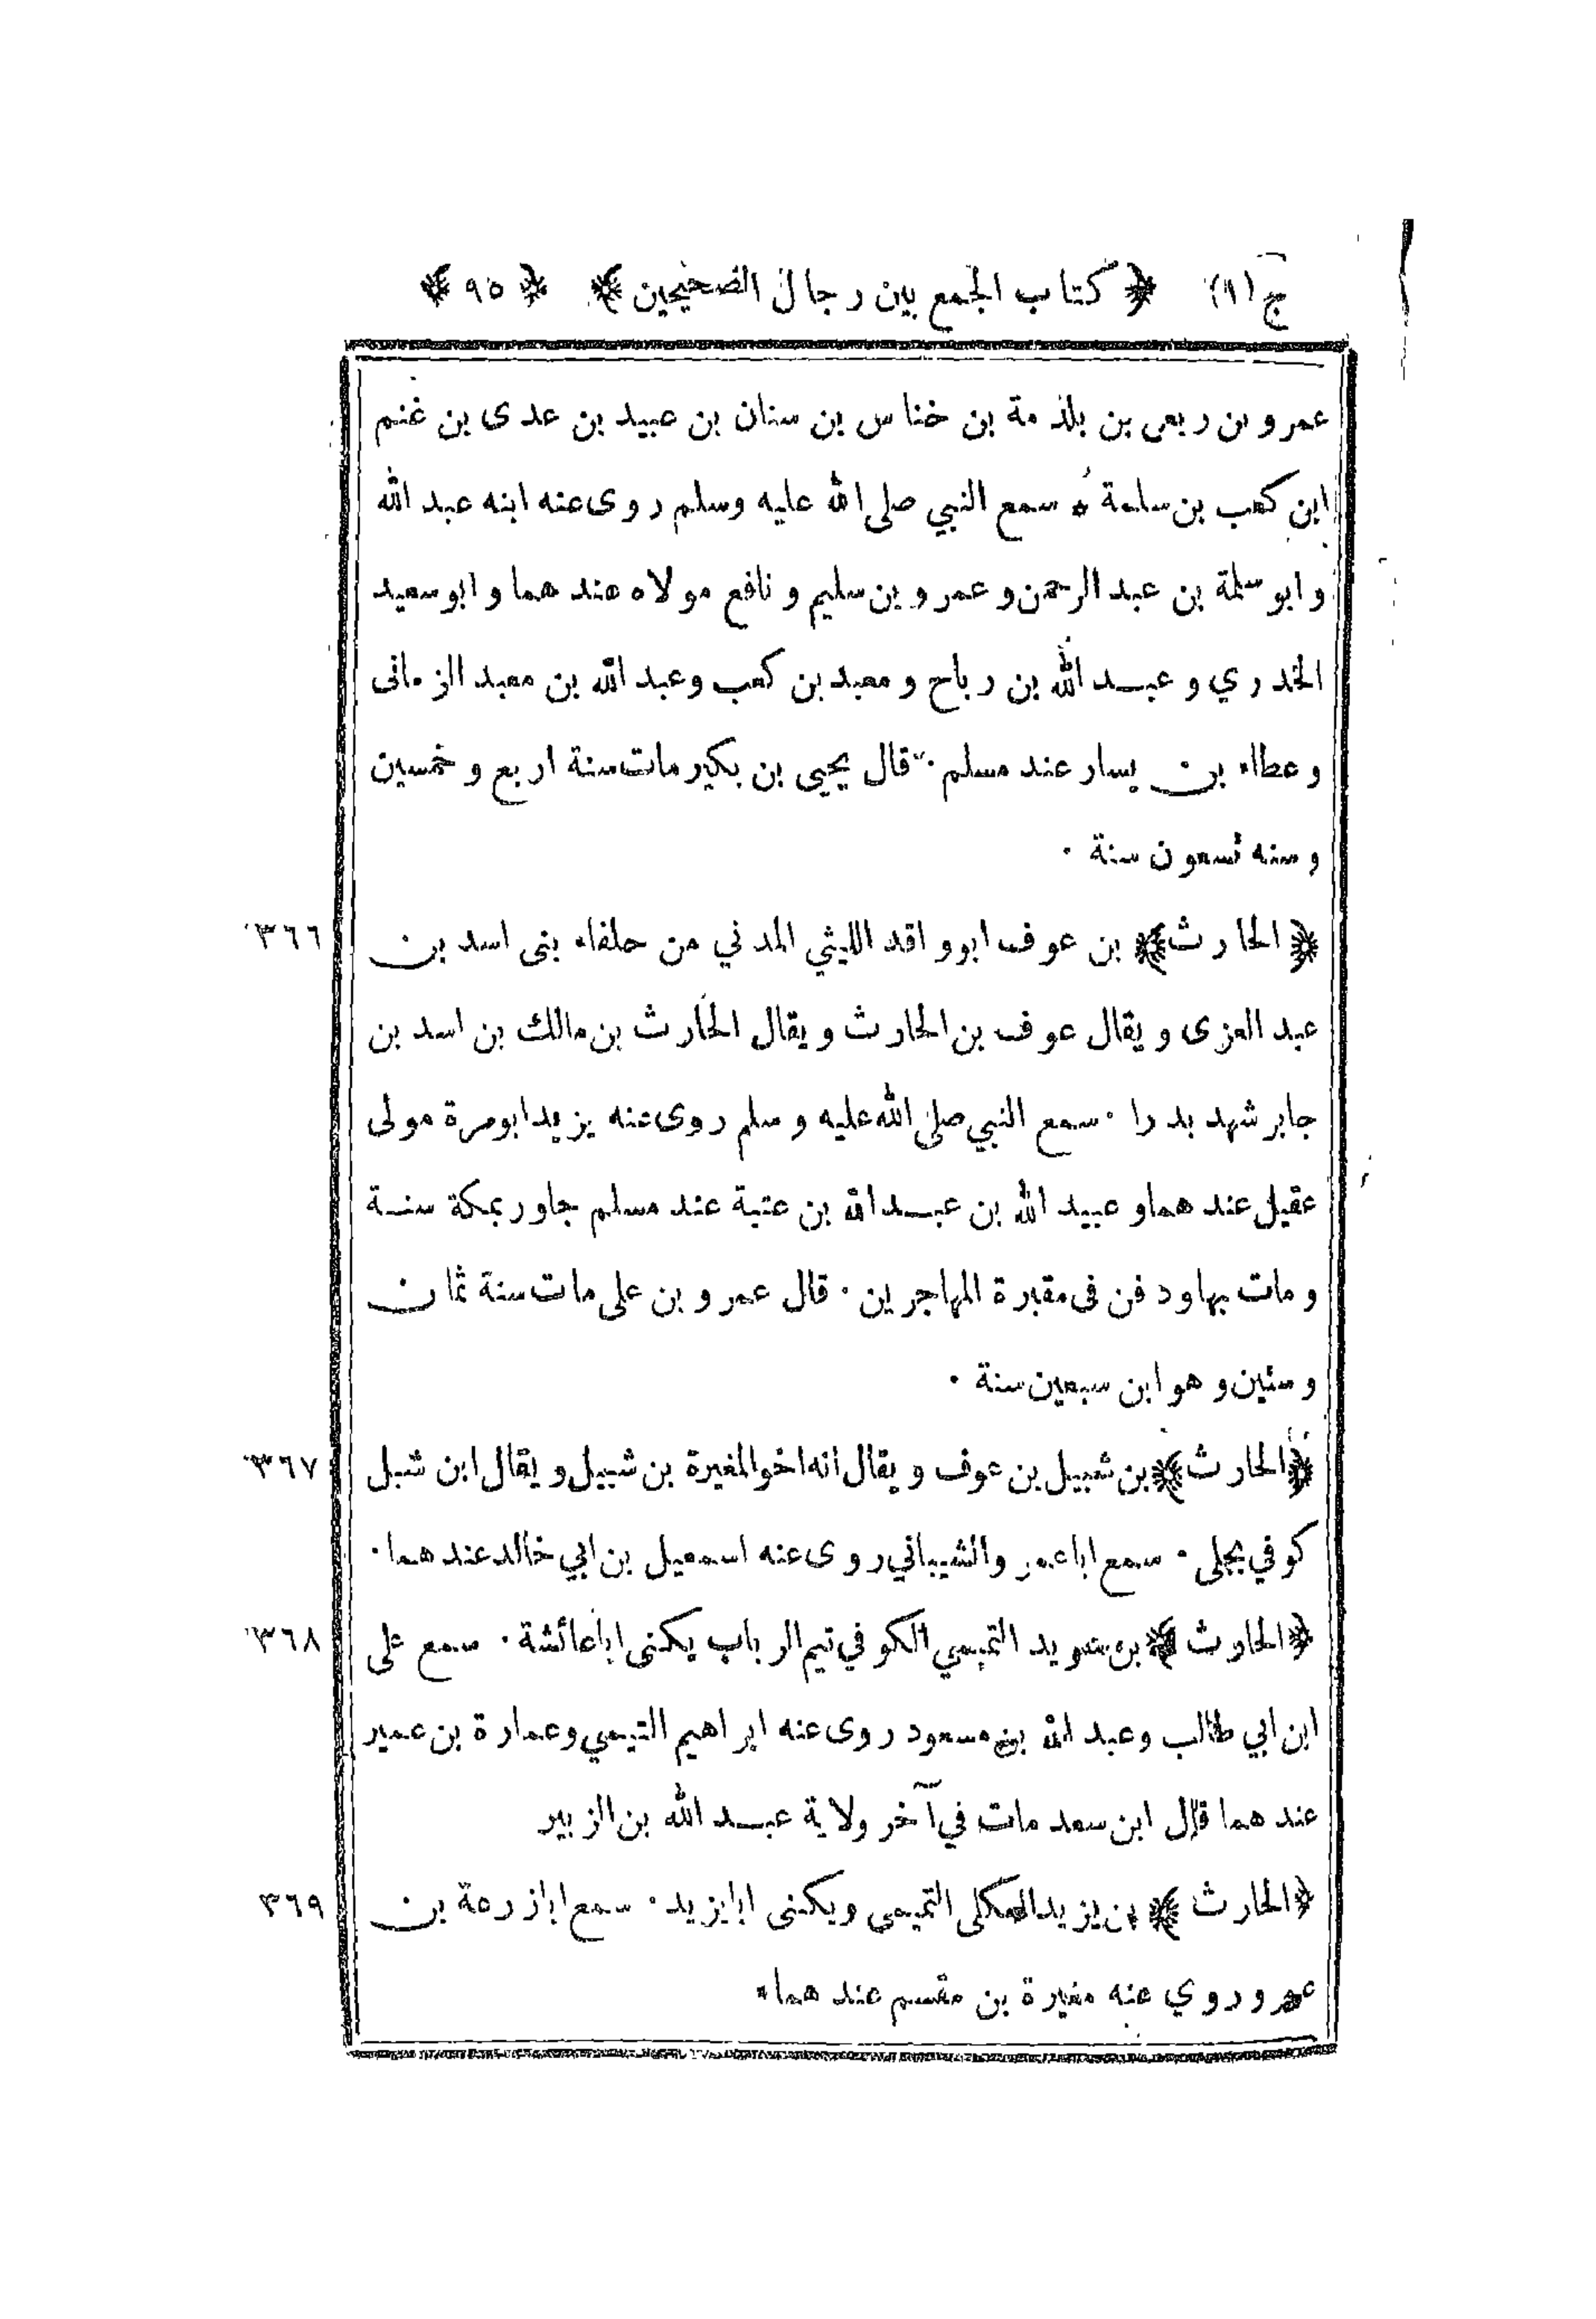 ج (١) ﴿ كتاب الجمع بين رجال الصحيحين ﴾ ﴿ ٩٥ ﴾
عمرو بن ربعى بن بلذمة بن خناس بن سنان بن عبيد بن عدى بن غنم
ابن كعب بن سلمة ٥ سمع النبي صلى الله عليه وسلم روى عنه ابنه عبد الله
وابو سلمة بن عبد الرحمن وعمرو بن سليم ونافع مولاه عندهما وابو سعيد
الخدري وعبد الله بن رباح ومعبد بن كعب وعبد الله بن معبد الزمانى
وعطاء بن يسار عند مسلم ٠ قال يحيى بن بكير مات سنة اربع وخمسين
وسنه تسعون سنة ٠
﴿ الحارث ﴾ بن عوف ابو واقد الليثي المدني من حلفاء بنى اسد بن ٣٦٦
عبد العزى ويقال عوف بن الحارث ويقال الحارث بن مالك بن اسد بن
جابر شهد بدرا ٠ سمع النبي صلى الله عليه وسلم روى عنه يزيد ابو مرة مولى
عقيل عندهما وعبيد الله بن عبد الله بن عتبة عند مسلم جاور بمكة سنة
ومات بها ودفن فى مقبرة المهاجرين ٠ قال عمرو بن على مات سنة ثمان
وستين وهو ابن سبعين سنة ٠
﴿ الحارث ﴾ بن شبيل بن عوف ويقال انه اخو المغيرة بن شبيل ويقال ابن شبل ٣٦٧
كوفي بجلى ٠ سمع ابا عمرو الشيباني روى عنه اسمعيل بن ابي خالد عندهما ٠
﴿ الحارث ﴾ بن سويد التميمي الكوفي تيم الرباب يكنى ابا عائشة ٠ سمع على ٣٦٨
ابن ابي طالب وعبد الله بن مسعود روى عنه ابراهيم التيمي وعمارة بن عمير
عندهما قال ابن سعد مات في آخر ولاية عبد الله بن الزبير
﴿ الحارث ﴾ بن يزيد العكلى التميمى ويكنى ابا يزيد ٠ سمع ابا زرعة بن ٣٦٩
عمرو روي عنه مغيرة بن مقسم عندهما ٠